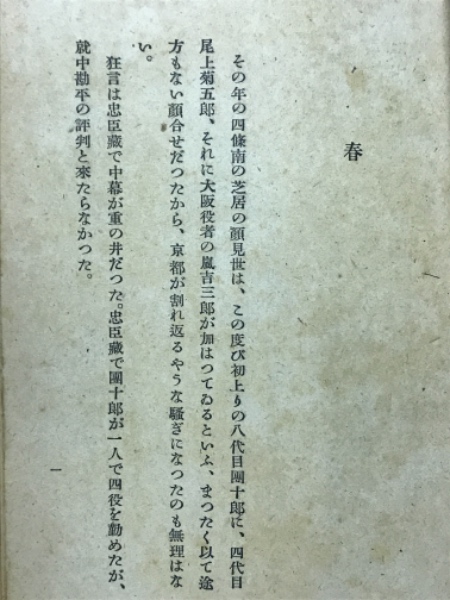 春
その年の四條南の芝居の顏見世は、この度び初上りの八代目團十郎に、四代目
尾上菊五郎、それに大阪役者の嵐吉三郎が加はつてゐるといふ、まつたく以て途
方もない顏合せだつたから、京都が割れ返るやうな騷ぎになつたのも無理はな
い。
狂言は忠臣藏で中幕が重の井だつた。忠臣藏で團十郎が一人で四役を勤めたが、
就中勘平の評判と來たらなかつた。
一